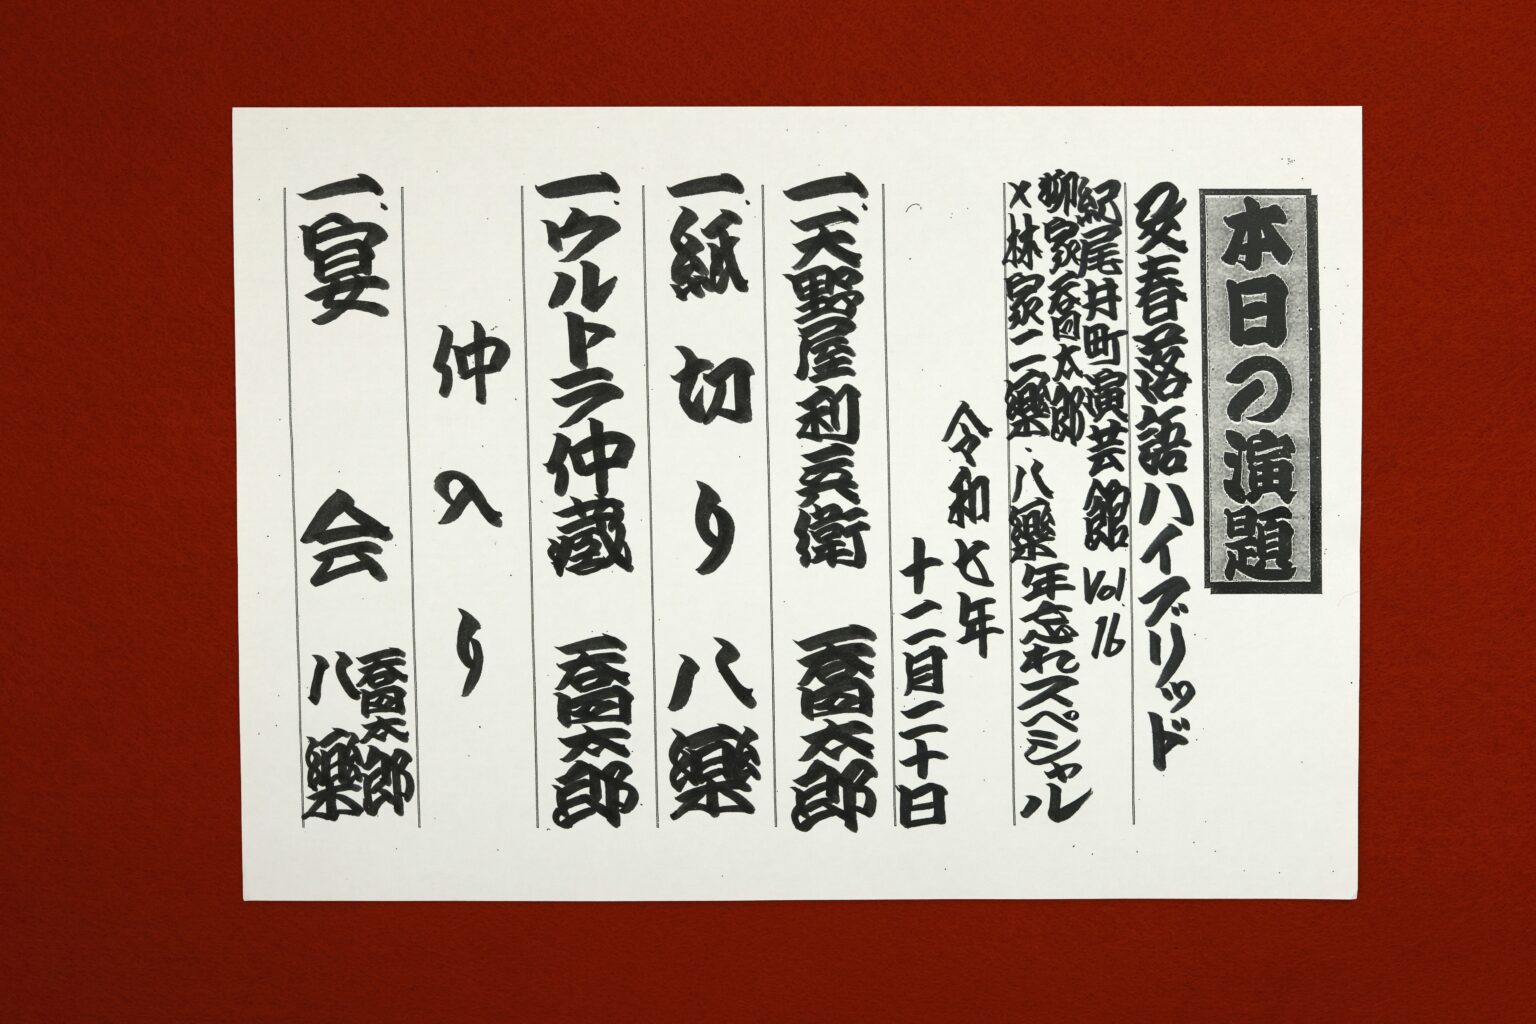 本日の演題
文春落語ハイブリッド
紀尾井町演芸館 Vol.16
柳家吞四太郎
×林家二樂・八樂年忘れスペシャル
令和七年
十二月二十日
一、天野屋利兵衛 吞四太郎
一、紙切り 八樂
一、ウルトラ仲蔵 吞四太郎
仲入り
一、宴会 吞四太郎
八樂